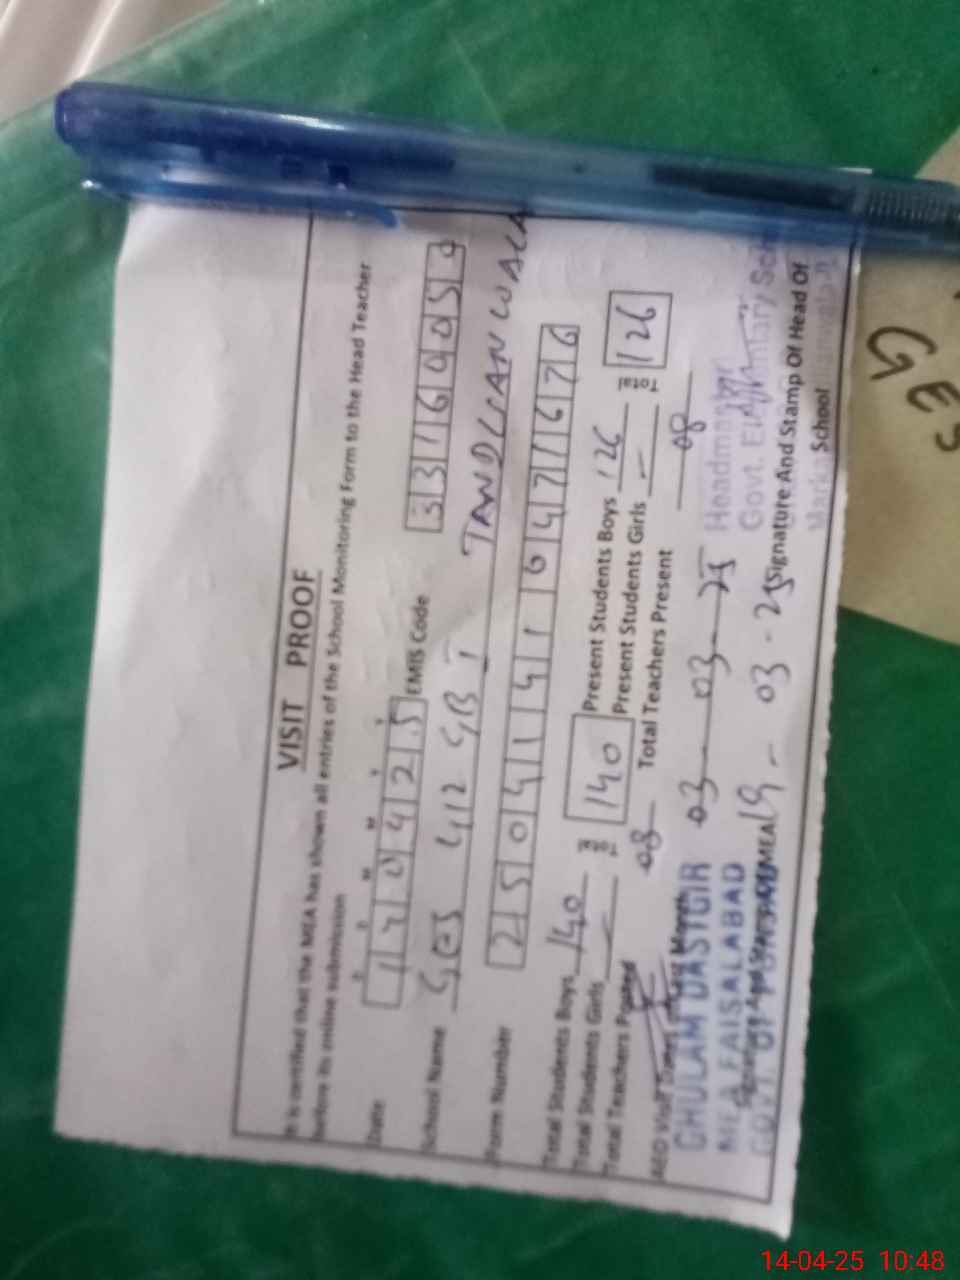 VISIT PROOF
It is certified that the MEA has shown all entries of the School Monitoring Form to the Head Teacher
before its online submission
Date 140425 EMIS Code 33160059
School Name GES 412 GB I TANDLIANWALA
Form Number 2504114116471676
Total Students Boys 140 140 Present Students Boys 126 126
Total Students Girls - Present Students Girls -
Total Teachers Posted 08 Total Teachers Present 08
AEO Visit Dates 03-03-25
GHULAM DASTGIR
MEA FAISALABAD
GOVT. OF PUNJAB
MEA 19-03-25 Signature And Stamp Of Head Of
School
Headmaster
Govt. Elementary
GES
14-04-25 10:48